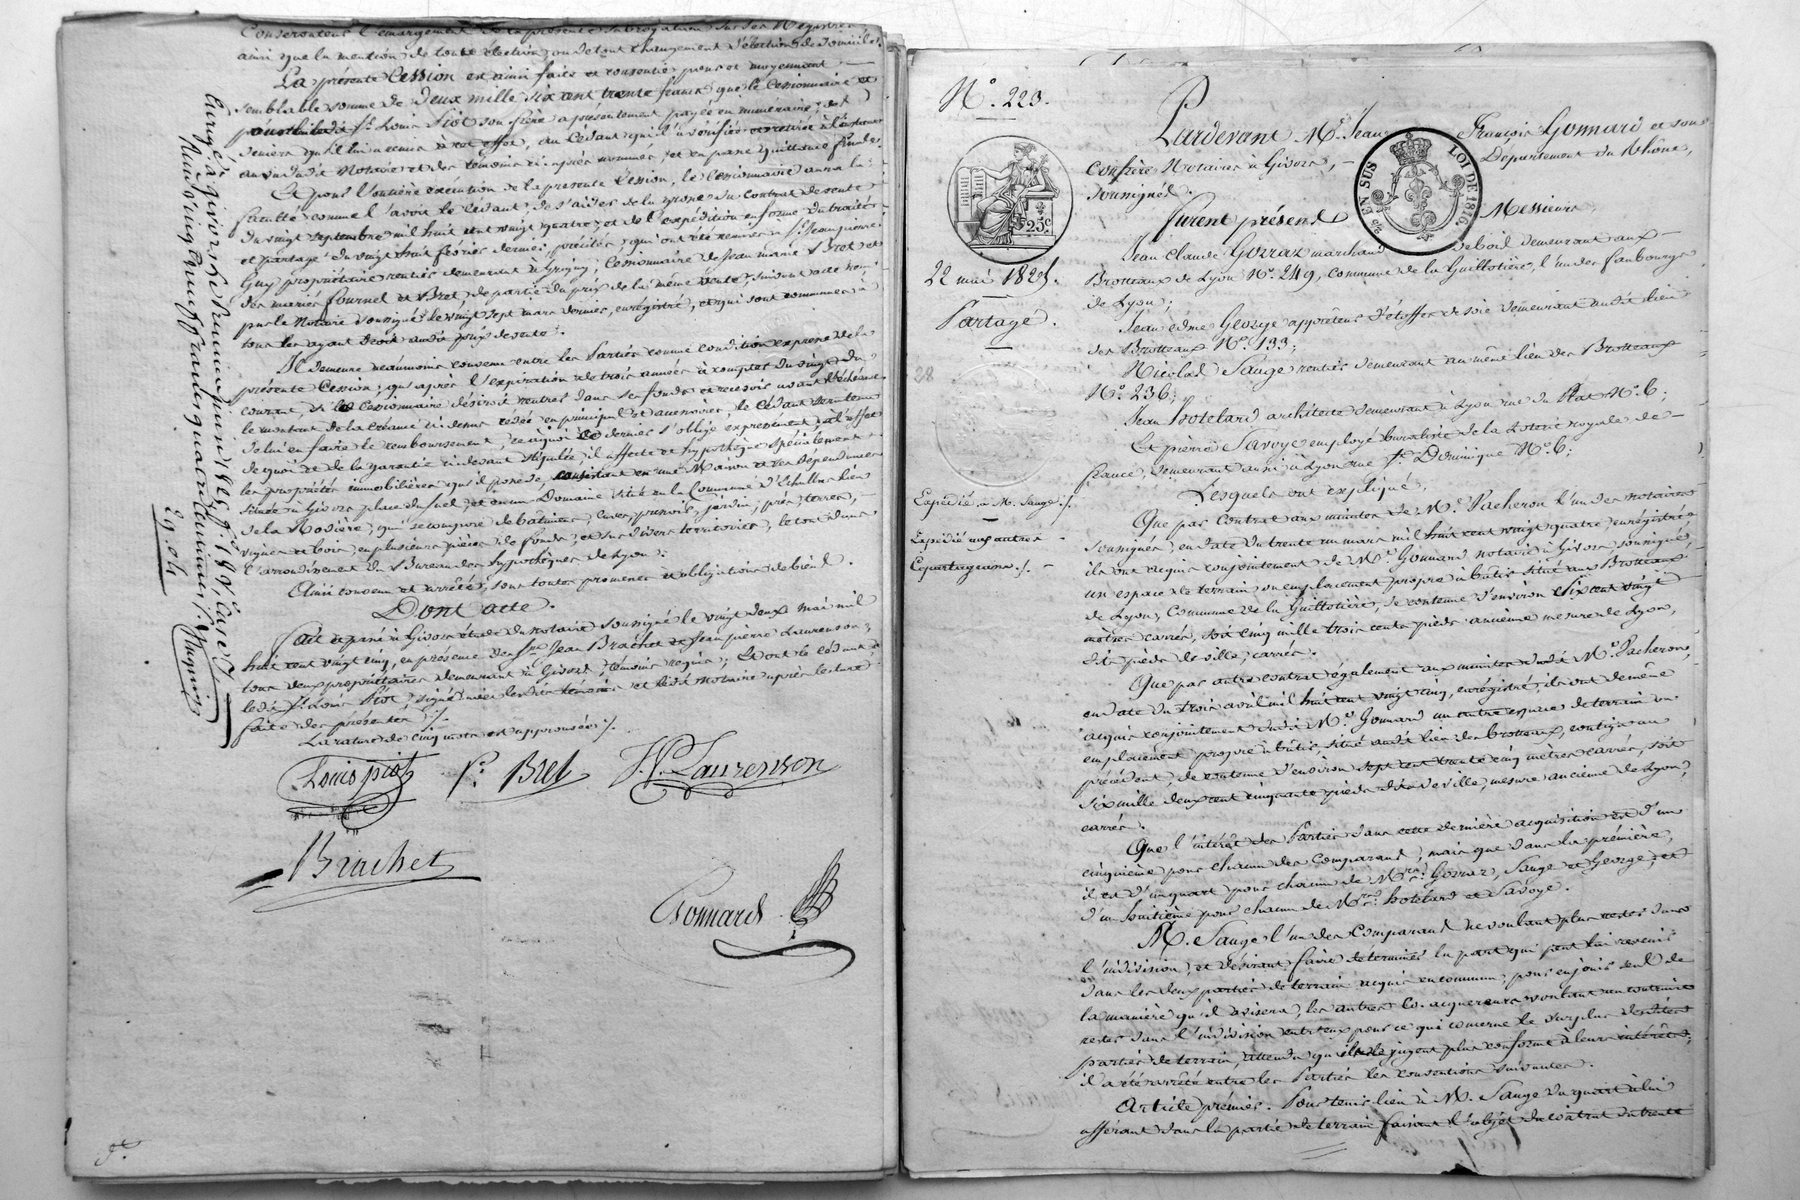 Consentent l'émargement de la présente subrogation sur les Registres
ainsi que la mention de toute élection, ou de tout changement d'élection de domicile.
La présente Cession est ainsi faite et consentie pour et moyennant
semblable somme de Deux mille six cent trente francs, que le Cessionnaire et
St. Louis Piot son frère a présentement payée en numéraire, et
deniers qu'il lui a remis à cet effet, au Cédant qui l'a vérifiée et retirée à l'instant
au vu dudit Notaire et des témoins ci-après nommés, et en passe quittance finale.
Et pour l'entière exécution de la présente Cession, le Cessionnaire aura la
faculté comme l'avoit le Cédant, de s'aider de la grosse du Contrat de vente
du vingt septembre mil huit cent vingt quatre, et de l'expédition en forme du traité
et partage du vingt huit février dernier précités, qui ont été remises à Sr. Jean pierre
Guy propriétaire rentier demeurant à Grigny, Cessionnaire de Jean marie Bret et
des mariés fournel et Bret, de partie du prix de la même vente, suivant acte reçu
par le Notaire soussigné le vingt sept mars dernier, enregistré, et qui sont communes à
tous les ayant droit audit prix de vente.
Il demeure néanmoins convenu entre les Parties comme condition expresse de la
présente Cession, qu'après l'expiration de trois années à compter du vingt du
courant, si le Cessionnaire désiroit rentrer dans ses fonds et recevoir avant l'échéance
le montant de la créance ci-dessus cédée en principal et accessoires, le Cédant sera tenu
de lui en faire le remboursement, ce à quoi ce dernier s'oblige expressément, à l'effet
de quoi et de la garantie ci-devant stipulée il affecte et hypothèque spécialement
les propriétés immobilières qu'il possède, consistant en une Maison et ses dépendances
située à Givors place du Suel, et en un Domaine situé en la Commune d'Echallas lieu
de la Rodière, qui se compose de bâtiment, cuves, pressoir, jardin, prés, terres,
vignes et bois, en plusieurs pièces de fonds, et sur divers territoires, le tout dans
l'arrondissement du Bureau des hypothèques de Lyon.
Ainsi convenu et arrêté, sous toutes promesses et obligations de biens.
Dont acte.
Fait et passé à Givors étude du notaire soussigné le vingt deux mai mil
huit cent vingt cinq, en présence des Srs. Jean Brachet et Jean pierre Laurenson,
tous deux propriétaires demeurant à Givors, témoins requis; Et ont le cédant et
ledit Sr. Louis Piot, signé avec lesdits témoins et ledit Notaire après lecture
faite des présentes ./.
La rature de cinq mots est approuvée ./.
Louis piot
P. Bret
J. P. Laurenson
Brachet
Gonnard
Enregé. à Givors le premier juin 1825 fo. 181 Vo. Case 5
Reçu vingt neuf francs quatre centimes ./.
29.04
N°. 223.
25 c
22 mai 1825.
Partage.
28
Expédié à M. Sauge ./.
Expédié aux autres
Copartageans ./.
EN SUS
LOI DE 1816.
Pardevant Me. Jean François Gonnard et son
Confrère Notaires à Givors, Département du Rhône,
soussignés.
furent présens Messieurs
Jean Claude Gorraz marchand de bois demeurant aux
Brotteaux de Lyon N°. 249, commune de la Guillotière, l'un des faubourgs
de Lyon;
Jean edme George apprêteur d'étoffes de soie demeurant audit lieu
des Brotteaux N°. 133;
Nicolas Sauge rentier demeurant au même lieu des Brotteaux
N°. 236;
Jean Potelard architecte demeurant à Lyon rue du Plat N°. 6;
Et pierre Savoye employé buraliste de la Loterie royale de
france, demeurant aussi à Lyon rue St. Dominique N°. 6;
Lesquels ont expliqué,
Que par contrat aux minutes de Me. Pacheron l'un des notaires
soussignés, en date du trente un mars mil huit cent vingt quatre, enregistré
ils ont acquis conjointement de Me. Gonnard notaire à Givors soussigné,
un espace de terrain ou emplacement propre à bâtir situé aux Brotteaux
de Lyon, Commune de la Guillotière, de contenue d'environ six cent vingt
mètres carrés, soit cinq mille trois cents pieds ancienne mesure de Lyon,
dits pieds de ville, carrés.
Que par autre contrat également aux minutes dudit Me. Pacheron,
en date du trois avril mil huit cent vingt cinq, enregistré, ils ont de même
acquis conjointement dudit Me. Gonnard un autre espace de terrain ou
emplacement propre à bâtir, situé audit lieu des brotteaux, contigu au
précédent, de contenue d'environ sept cent trente cinq mètres carrés, soit
six mille deux cent cinquante pieds dits de ville, mesure ancienne de Lyon,
carrés.
Que l'intérêt des Parties dans cette dernière acquisition est d'un
cinquième pour chacun des Comparans, mais que dans la première,
il est d'un quart pour chacun de Mrs. Gorraz, Sauge et George, et
d'un huitième pour chacun de Mrs. Potelard et Savoye.
M. Sauge l'un des Comparans ne voulant plus rester dans
l'indivision, et désirant faire déterminer la part qui peut lui revenir
dans les deux parties de terrain acquis en commun, pour en jouir seul de
la manière qu'il avisera, les autres Co-acquéreurs voulant au contraire
rester dans l'indivision entr'eux pour ce qui concerne le surplus desdites
parties de terrain, attendu qu'ils le jugent plus conforme à leurs intérêts;
il a été arrêté entre les Parties les conventions suivantes.
Article premier. Pour tenir lieu à M. Sauge du quart à lui
afférant dans la partie de terrain faisant l'objet du contrat du trente